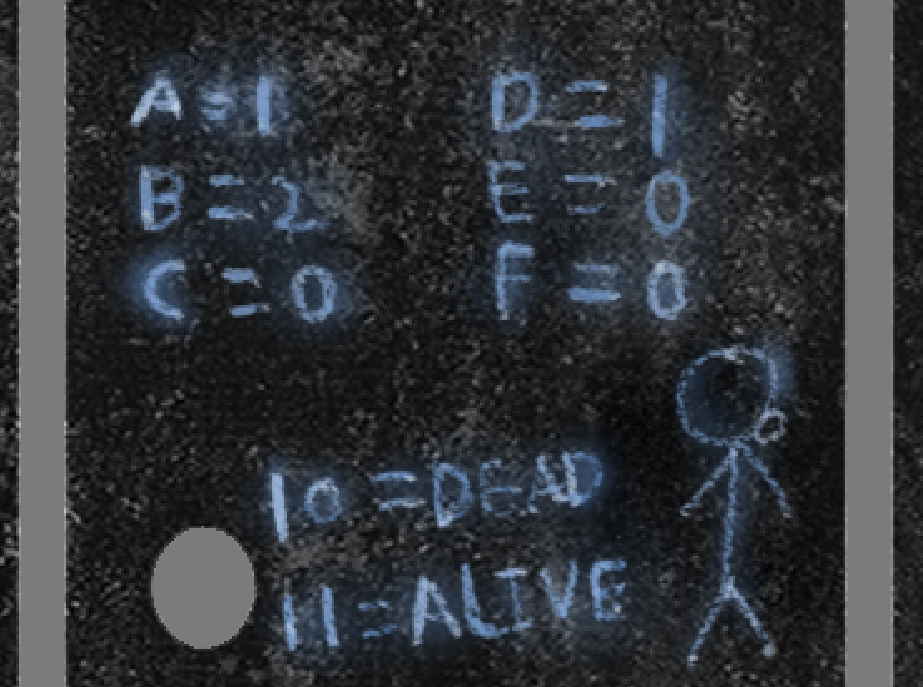 A=1
B=2
C=0
D=1
E=0
F=0
10=DEAD
11=ALIVE